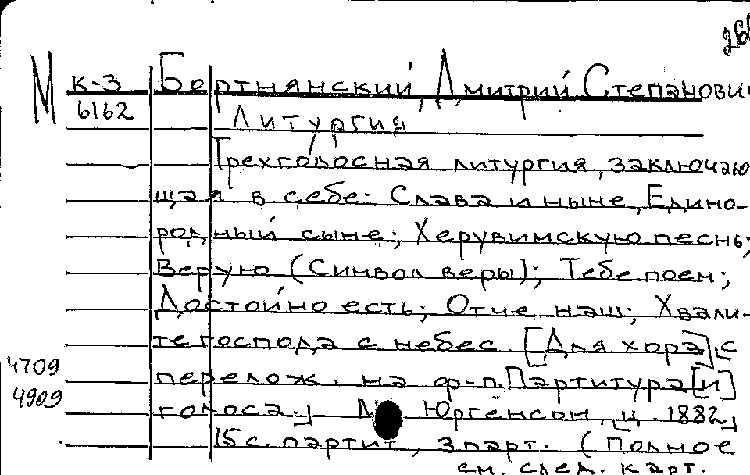 26
М к-3 Бортнянский, Дмитрий Степанович
6162 Литургия
Трехголосная литургия, заключаю-
щая в себе: Слава и ныне, Едино-
родный сыне; Херувимскую песнь;
Верую (Символ веры); Тебе поем;
Достойно есть; Отче наш; Хвали-
те господа с небес. [Для хора] с
4709 перелож. на ф-п. Партитура [и]
4909 голоса.] М. Юргенсон, ц. 1882]
15 с. партит, 3 парт. (Полное
см. след. карт.